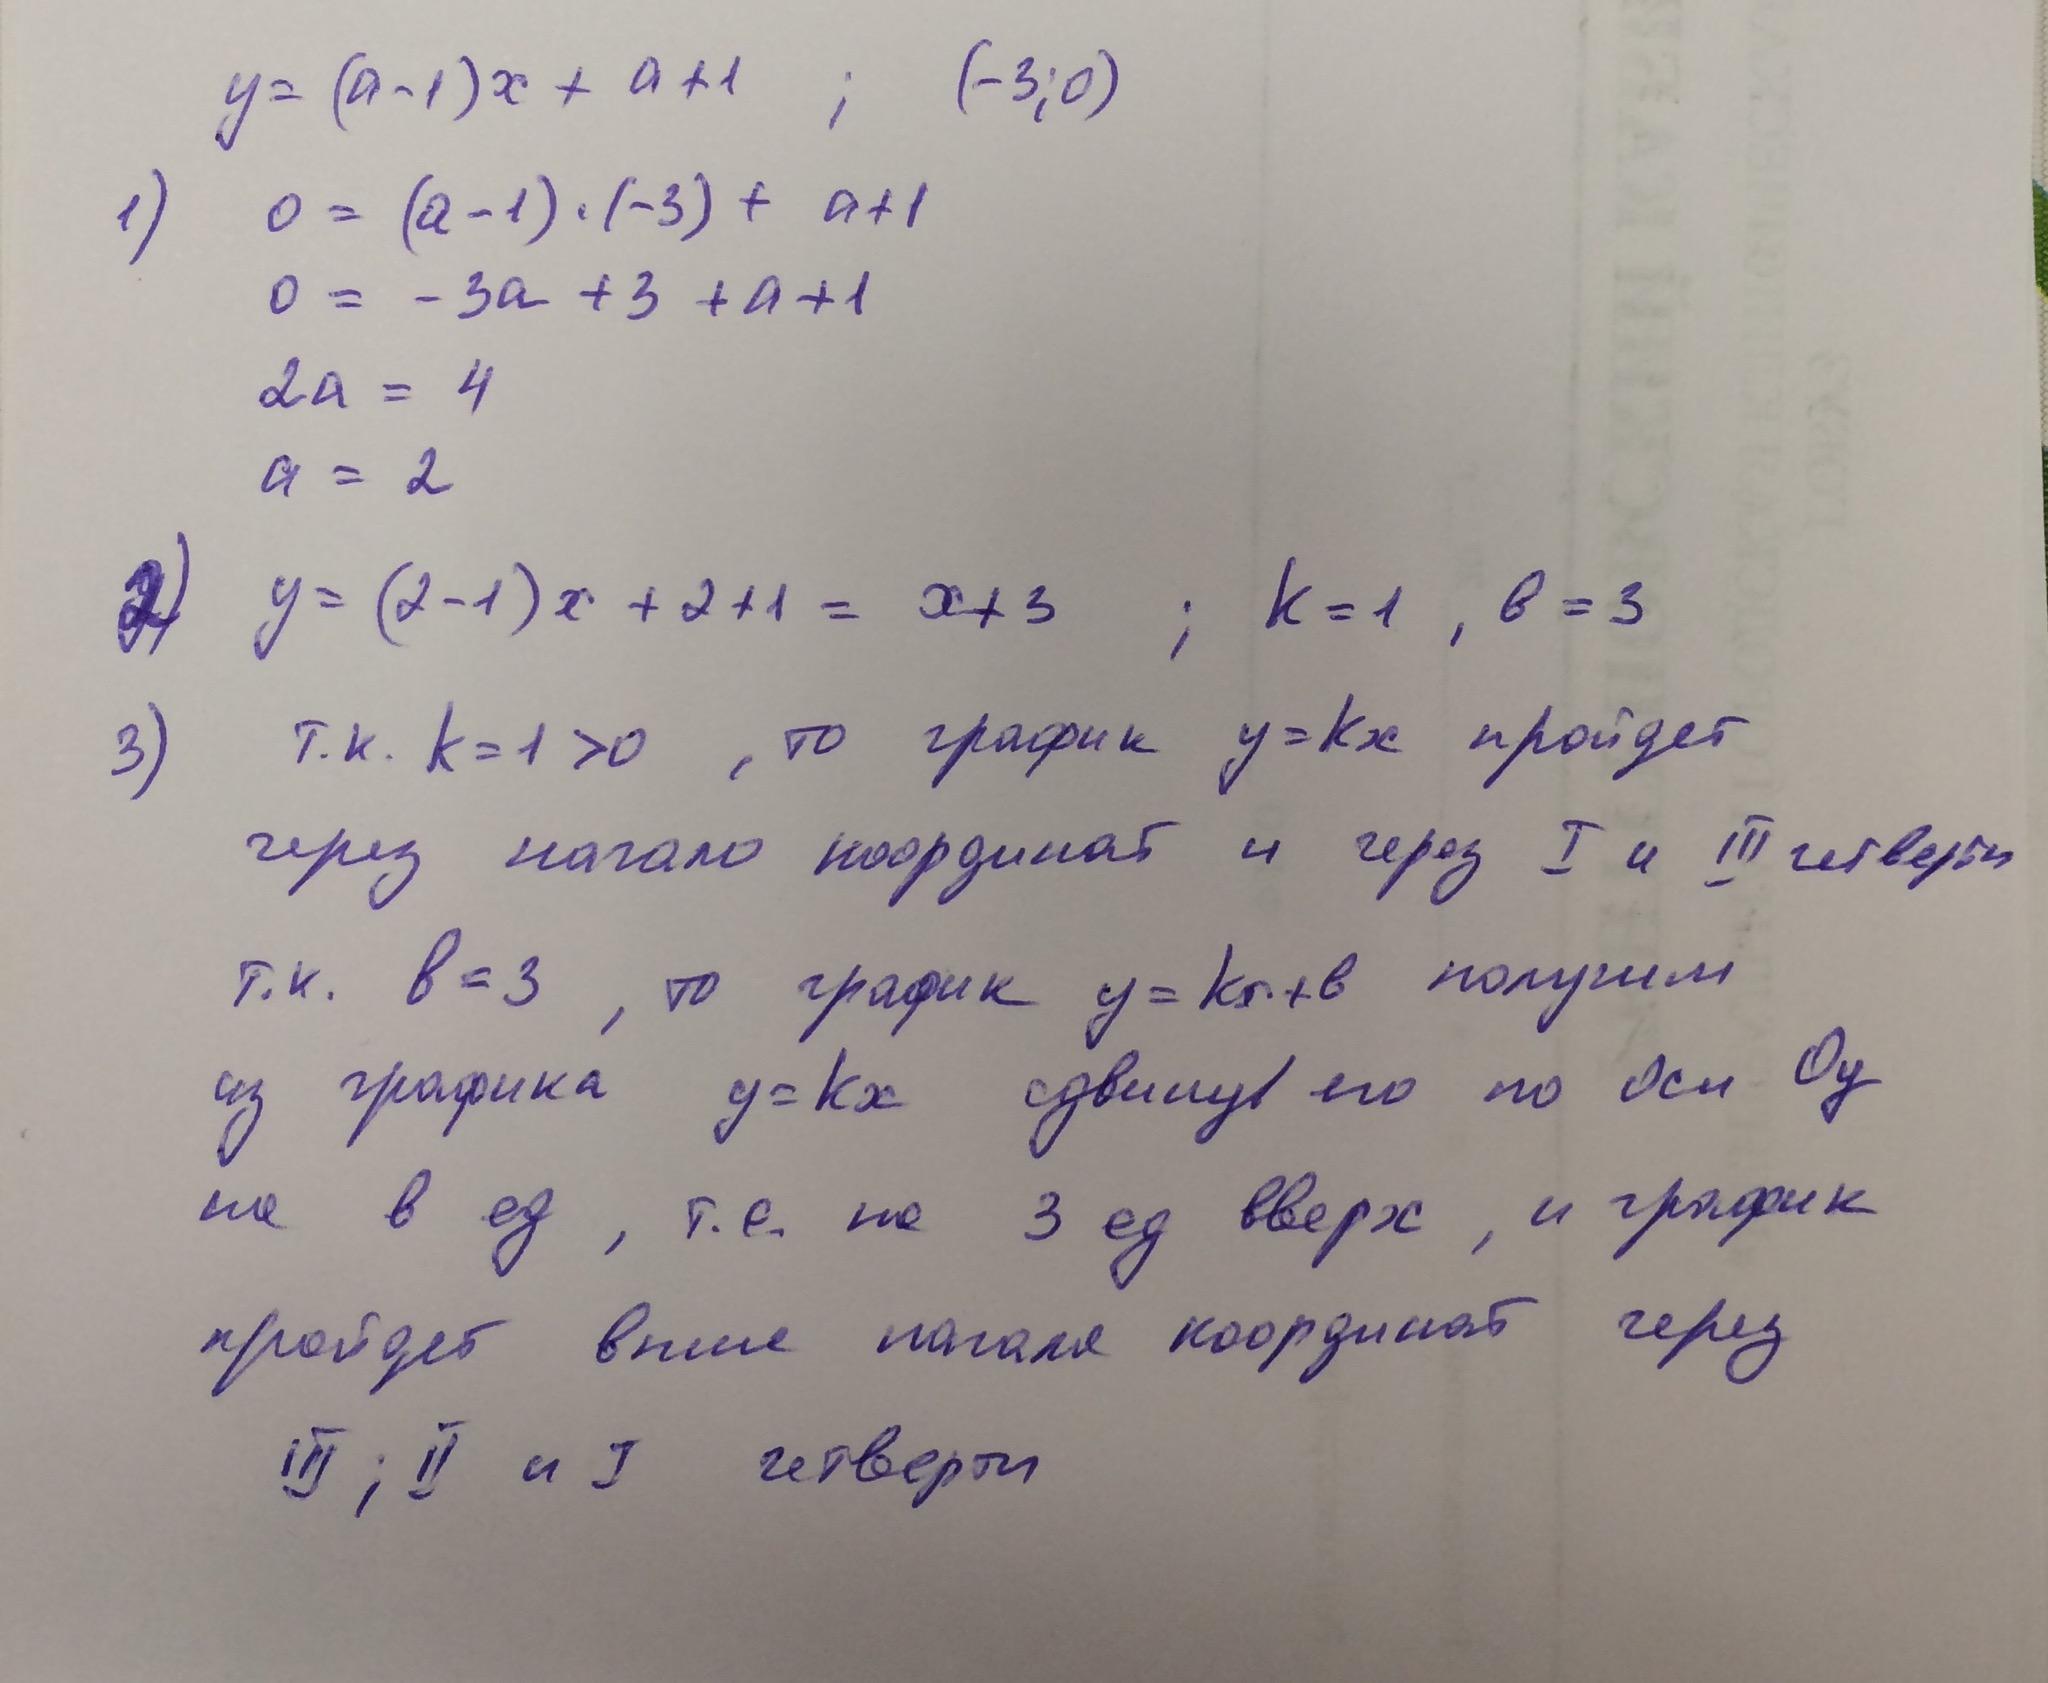 y = (a-1)x + a+1 ; (-3;0)
1) 0 = (a-1)·(-3) + a+1
0 = -3a +3 +a+1
2a = 4
a = 2
2) y = (2-1)x +2+1 = x+3 ; k=1, b=3
3) т.к. k=1>0, то график y=kx пройдет
через начало координат и через I и III четверти
т.к. b=3, то график y=kx+b получим
из графика y=kx сдвинув его по оси Oy
на b ед, т.е. на 3 ед вверх, и график
пройдет выше начала координат через
III; II и I четверти